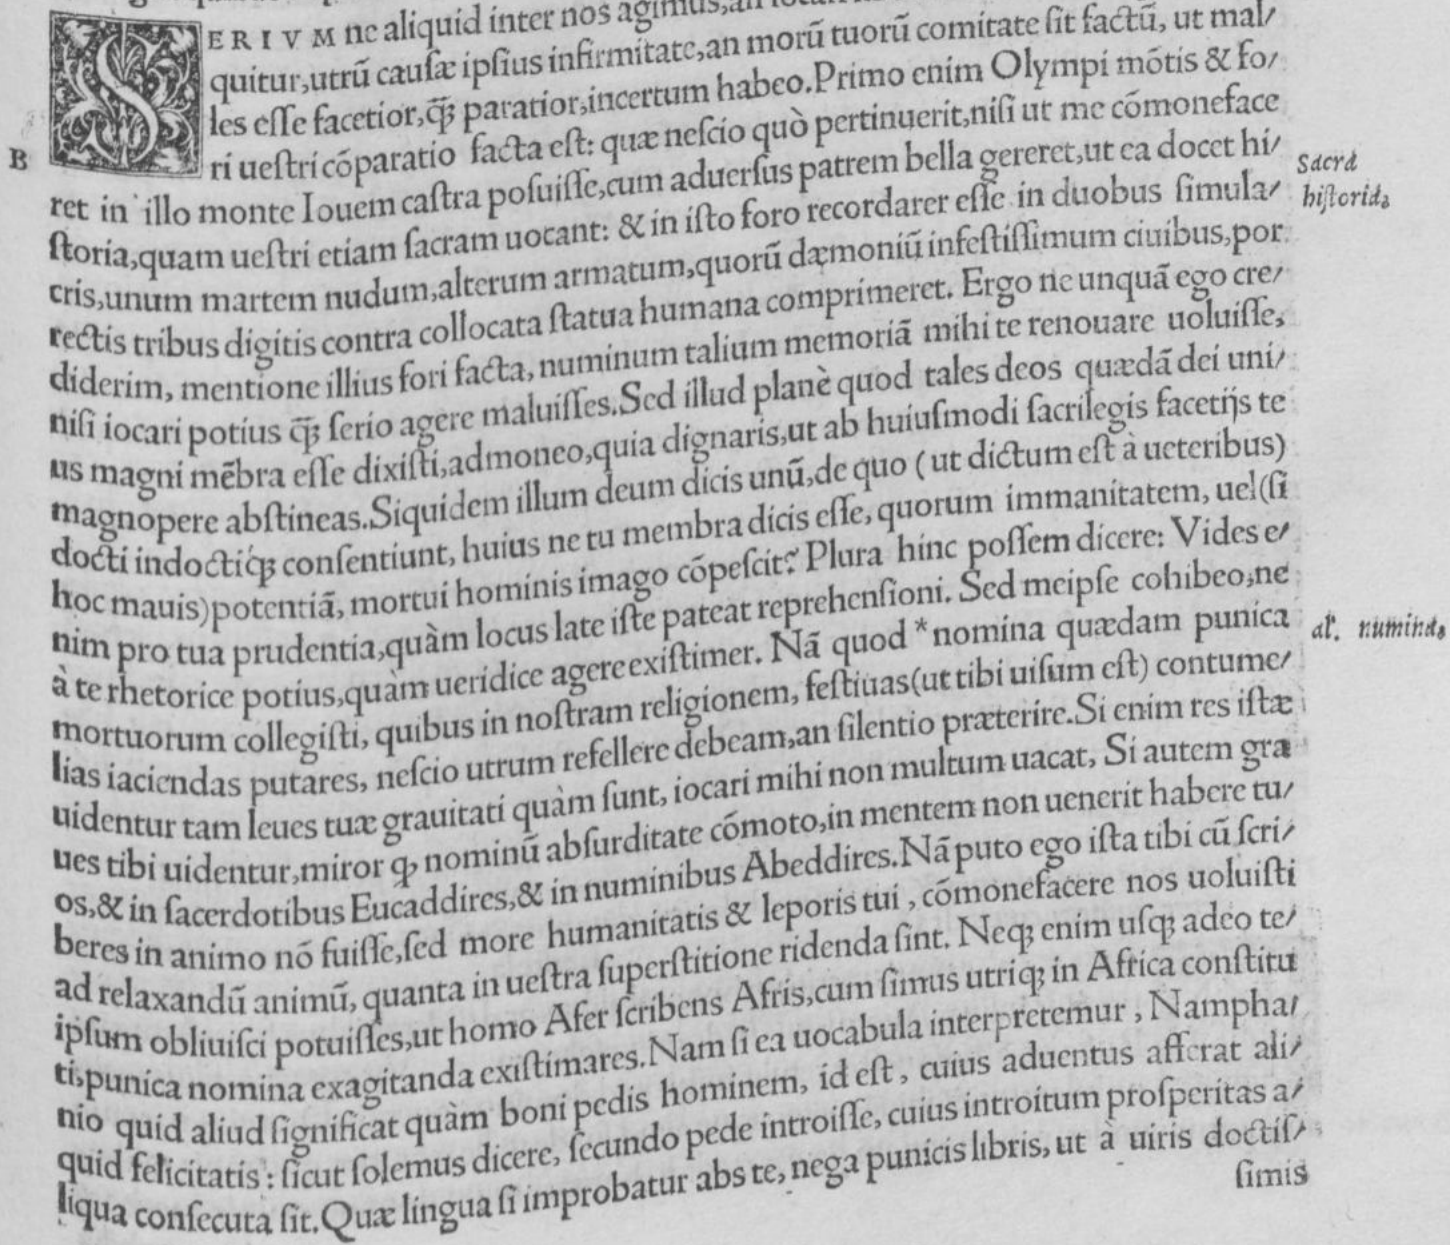 SERIVM ne aliquid inter nos agimus,an
quitur,utrũ cauſæ ipſius infirmitate,an morũ tuorũ comitate ſit factũ, ut mal/
les eſſe facetior,q̃ꝫ paratior,incertum habeo.Primo enim Olympi mõtis & fo/
B
ri ueſtri cõparatio facta eſt: quæ neſcio quò pertinuerit,niſi ut me cõmoneface
ret in illo monte Iouem caſtra poſuiſſe,cum aduerſus patrem bella gereret,ut ea docet hi/
Sacra
ſtoria,quam ueſtri etiam ſacram uocant: & in iſto foro recordarer eſſe in duobus ſimula/
hiſtoria.
cris,unum martem nudum,alterum armatum,quorũ dæmoniũ infeſtiſſimum ciuibus,por
rectis tribus digitis contra collocata ſtatua humana comprimeret. Ergo ne unquã ego cre/
diderim, mentione illius fori facta, numinum talium memoriã mihi te renouare uoluiſſe,
niſi iocari potius q̃ꝫ ſerio agere maluiſſes.Sed illud planè quod tales deos quædã dei uni/
us magni mẽbra eſſe dixiſti,admoneo,quia dignaris,ut ab huiuſmodi ſacrilegis facetijs te
magnopere abſtineas.Siquidem illum deum dicis unũ,de quo (ut dictum eſt à ueteribus)
docti indoctiqꝫ conſentiunt, huius ne tu membra dicis eſſe, quorum immanitatem, uel(ſi
hoc mauis)potentiã, mortui hominis imago cõpeſcit? Plura hinc poſſem dicere: Vides e/
nim pro tua prudentia,quàm locus late iſte pateat reprehenſioni. Sed meipſe cohibeo,ne
à te rhetorice potius,quàm ueridice agere exiſtimer. Nã quod *nomina quædam punica
al'. numina.
mortuorum collegiſti, quibus in noſtram religionem, feſtiuas(ut tibi uiſum eſt) contume/
lias iaciendas putares, neſcio utrum refellere debeam,an ſilentio præterire.Si enim res iſtæ
uidentur tam leues tuæ grauitati quàm ſunt, iocari mihi non multum uacat, Si autem gra
ues tibi uidentur,miror ꝙ nominũ abſurditate cõmoto,in mentem non uenerit habere tu/
os,& in ſacerdotibus Eucaddires,& in numinibus Abeddires.Nã puto ego iſta tibi cũ ſcri/
beres in animo nõ fuiſſe,ſed more humanitatis & leporis tui , cõmonefacere nos uoluiſti
ad relaxandũ animũ, quanta in ueſtra ſuperſtitione ridenda ſint. Neqꝫ enim uſqꝫ adeo te/
ipſum obliuiſci potuiſſes,ut homo Afer ſcribens Afris,cum ſimus utriqꝫ in Africa conſtitu
ti,punica nomina exagitanda exiſtimares.Nam ſi ea uocabula interpretemur , Nampha/
nio quid aliud ſignificat quàm boni pedis hominem, id eſt , cuius aduentus afferat ali/
quid felicitatis: ſicut ſolemus dicere, ſecundo pede introiſſe, cuius introitum proſperitas a/
liqua conſecuta ſit.Quæ lingua ſi improbatur abs te, nega punicis libris, ut à uiris doctiſ/
ſimis